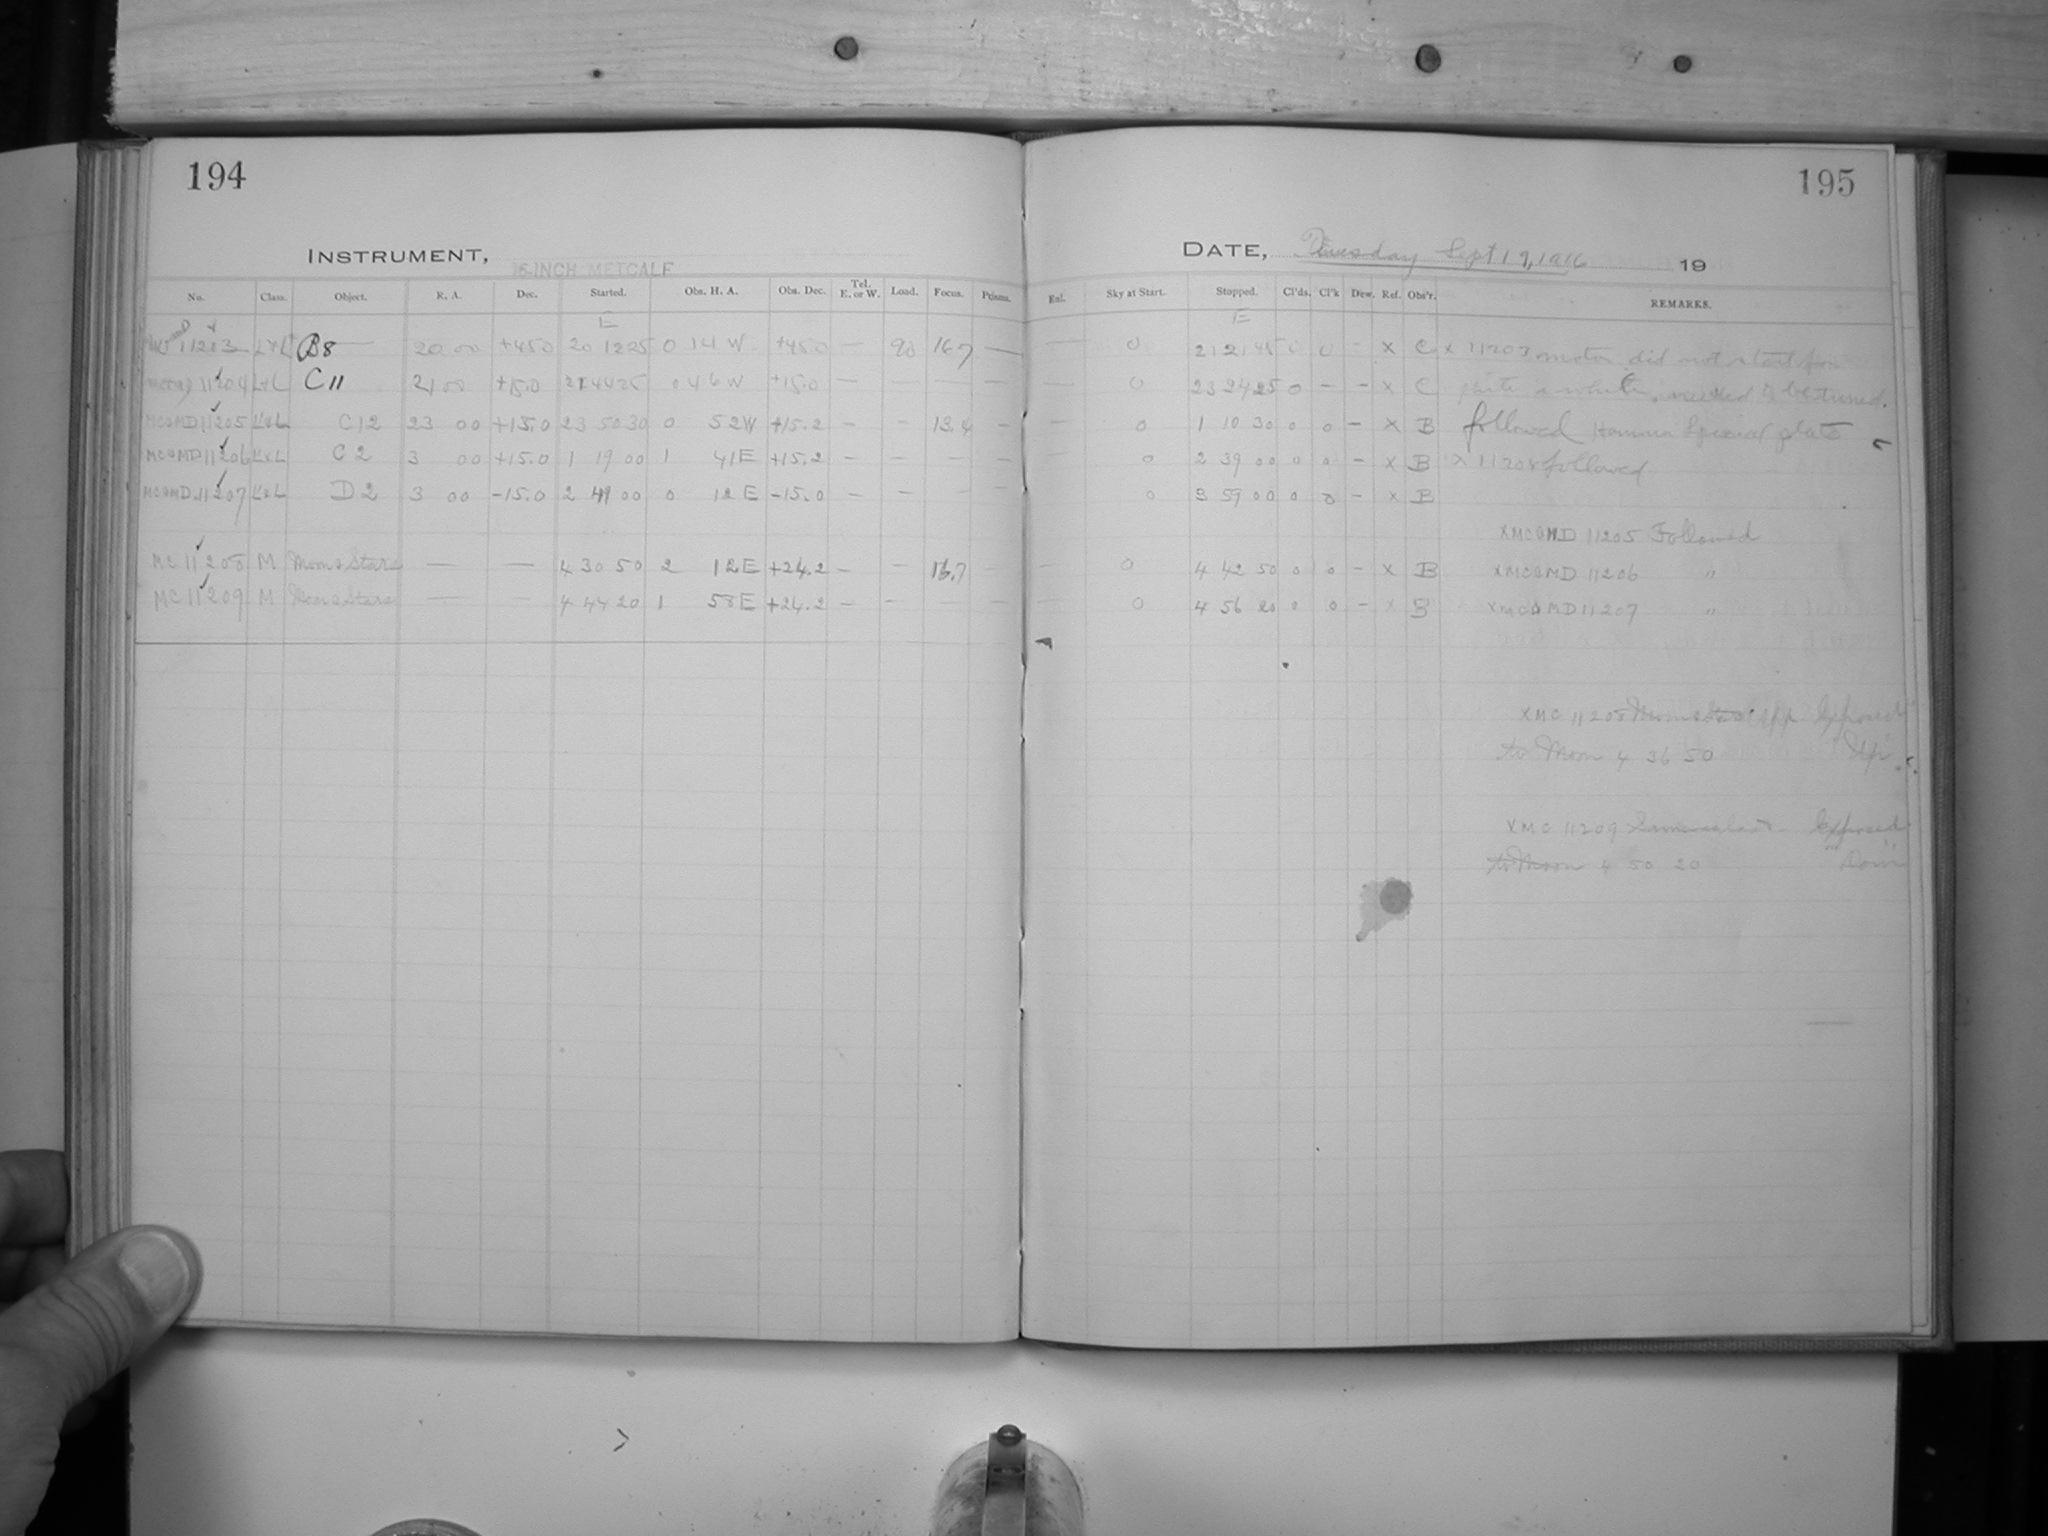 194
195
INSTRUMENT, 16-INCH METCALF
DATE, Tuesday Sept 19, 1916 19
No. Class. Object. R. A. Dec. Started. Obs. H. A. Obs. Dec. Tel. E. or W. Load. Focus. Prisms. Enl. Sky at Start. Stopped. Cl'ds. Cl'k Dew. Ref. Obs'r. REMARKS.
E E
11203 L+L B8 20 00 +45.0 20 12 25 0 14 W +45.0 — 90 16.7 — — 0 21 21 45 0 0 - x C x 11203 motor did not start for
11204 L+L C11 21 00 +15.0 21 44 25 0 46 W +15.0 — — — — 0 23 24 25 0 — — x C quite a while, needed to be tuned.
MC&MD 11205 L&L C12 23 00 +15.0 23 50 30 0 52 W +15.2 — — 13.4 — 0 1 10 30 0 0 — x B followed Special plate
MC&MD 11206 L&L C2 3 00 +15.0 1 19 00 1 41 E +15.2 — — — — 0 2 39 00 0 0 — x B x 11204 followed
MC&MD 11207 L&L D2 3 00 -15.0 2 49 00 0 12 E -15.0 — — — — 0 3 59 00 0 0 — x B
XMC&MD 11205 Followed
MC 11208 M Moon & Stars — — 4 30 50 2 12 E +24.2 — — 16.7 — — 0 4 42 50 0 0 — x B XMC&MD 11206 "
MC 11209 M Moon & Stars — — 4 44 20 1 58 E +24.2 — — — — — 0 4 56 20 0 0 — x B XMC&MD 11207 "
XMC 11208 Exposed
to Moon 4 36 50
XMC 11209 Exposed
to Moon 4 50 20